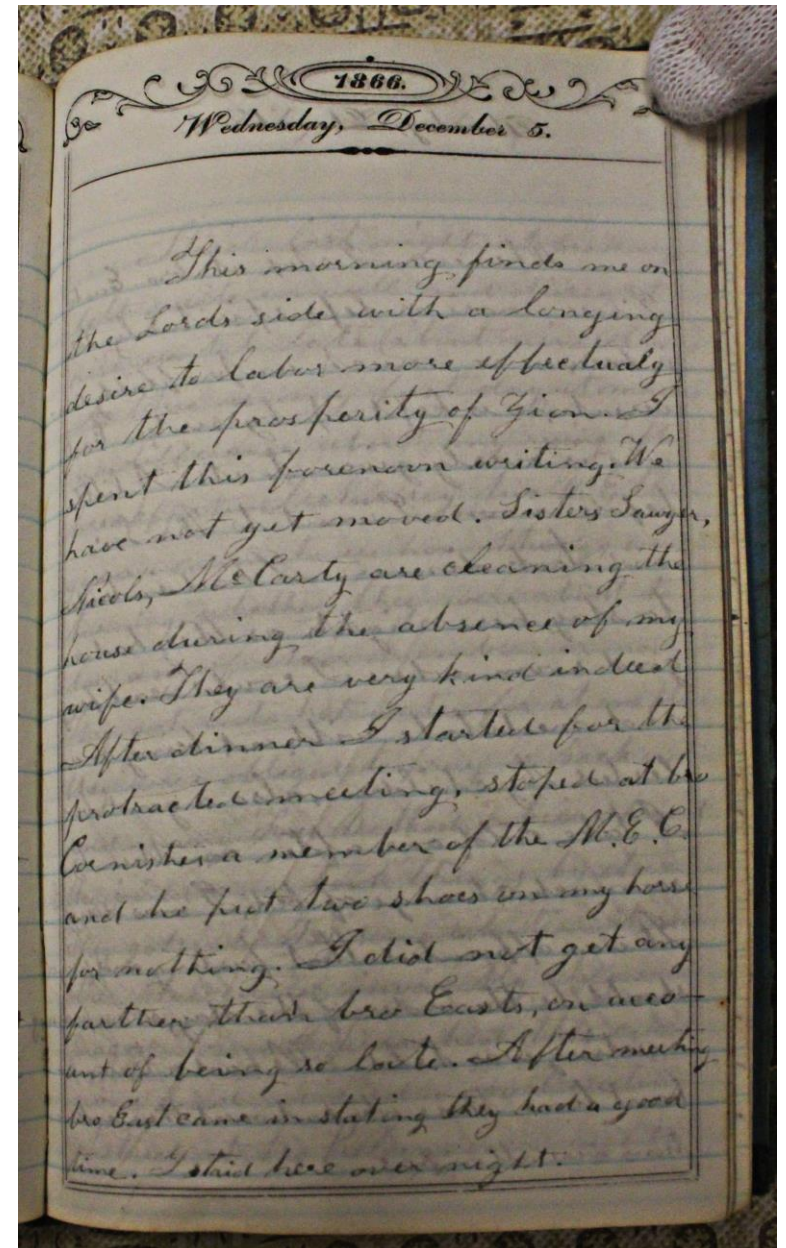 1866.
Wednesday, December 5.
This morning finds me on
the Lords side with a longing
desire to labor more effectualy
for the prosperity of Zion. I
spent this forenoon writing. We
have not yet moved. Sisters Sawyer,
Nicols, McCarty are cleaning the
house during the absence of my
wife. They are very kind indeed
After dinner I started for the
protracted meeting, stoped at bro
Cornishes a member of the M.E.C.
and he put two shoes on my horse
for nothing. I did not get any
farther than bro Easts, on acco-
unt of being so late. After meeting
bro East came in stating they had a good
time. I staid here over night.